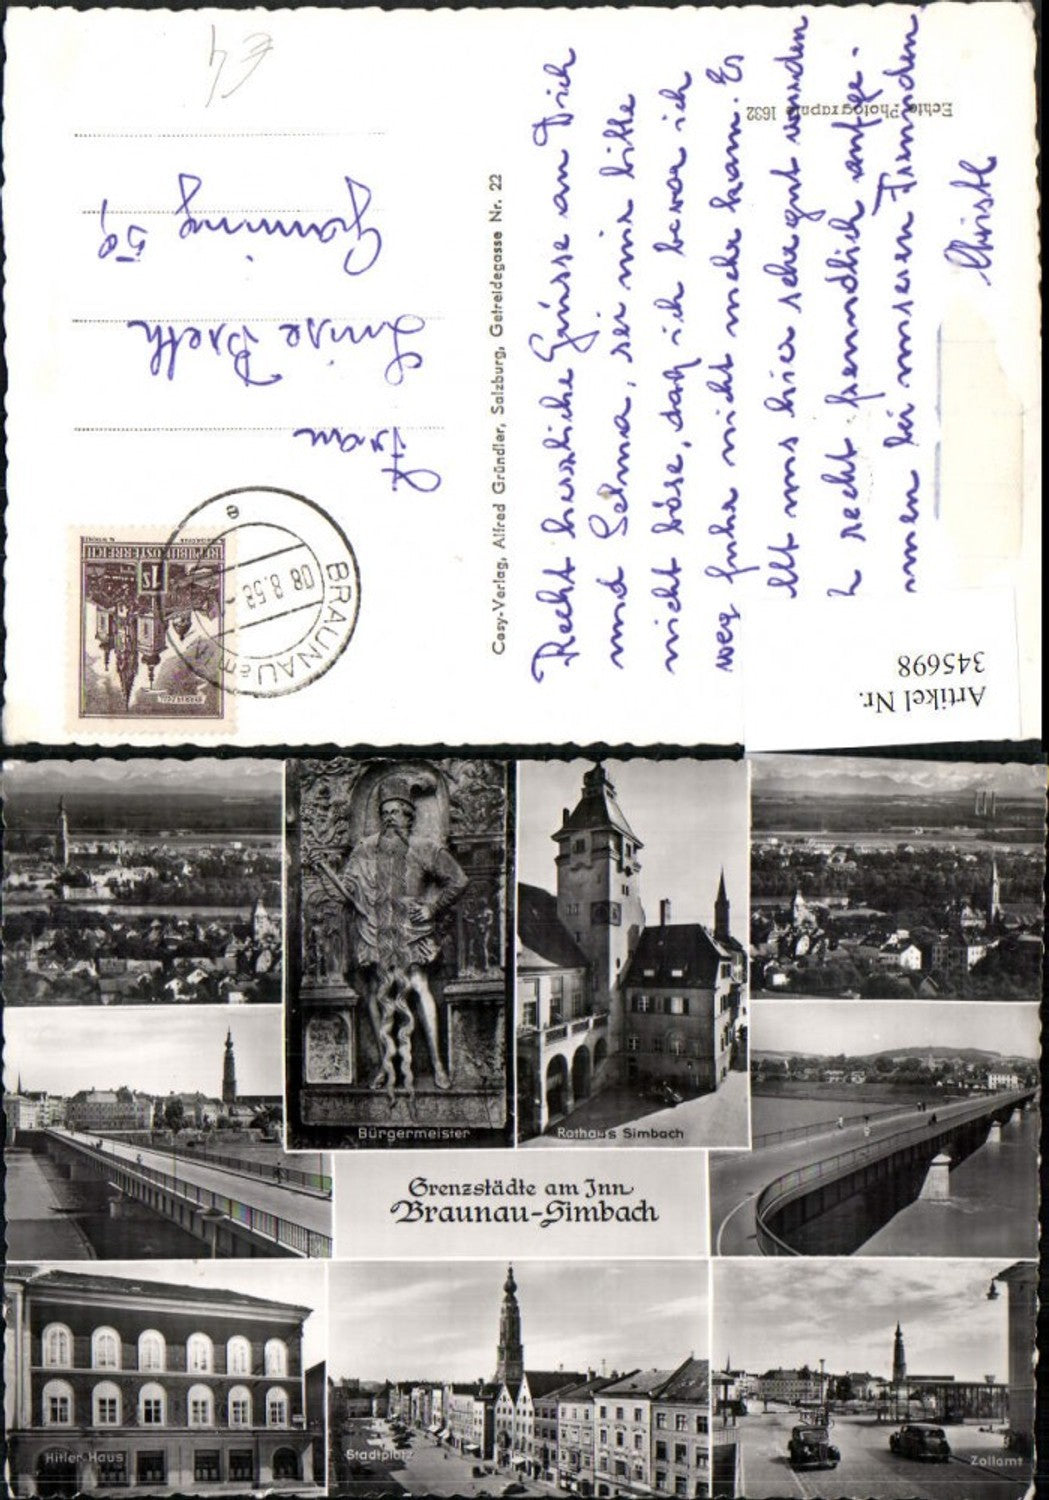 € 4
Frau
Luise Breth
Gaming 59
REPUBLIK ÖSTERREICH
1S
BRAUNAU am INN
08.8.58
e
Cosy-Verlag, Alfred Gründler, Salzburg, Getreidegasse Nr. 22
Echte Photographie 1632
Recht herzliche Grüsse an Dich
und Selma, sei mir bitte
nicht böse, daß ich bevor ich
weg fuhr nicht mehr kam. Es
uns hier sehr gut wurden
recht freundlich aufge-
nommen bei unseren Freunden.
Christl
Artikel Nr.
345698
Bürgermeister
Rathaus Simbach
Grenzstädte am Inn
Braunau-Simbach
Hitler-Haus
Stadtplatz
Zollamt